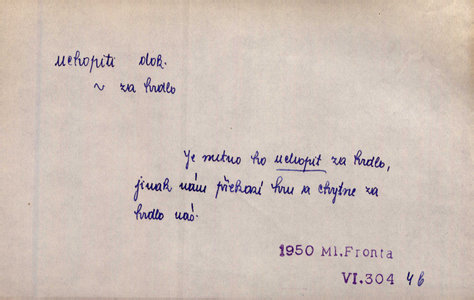 uchopiti dok.
~ za hrdlo
Je nutno ho uchopit za hrdlo,
jinak nám překazí hru a chytne za
hrdlo nás.
1950 Ml.Fronta
VI.304 46